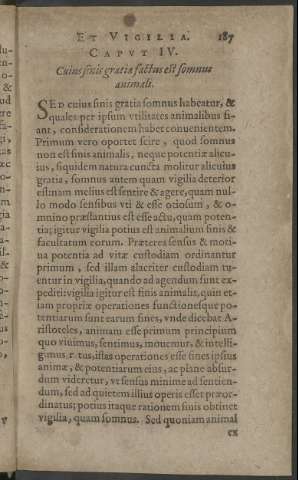 ET VIGILIA. 187
CAPVT IV.
Cuius finis gratia factus est somnus
animali.
SED cuius finis gratia somnus habeatur, &
quales per ipsum vtilitates animalibus fi-
ant, considerationem habet conuenientem.
Primum vero oportet scire, quod somnus
non est finis animalis, neque potentiæ alicu-
ius, siquidem natura cuncta molitur alicuius
gratia, somnus autem quam vigilia deterior
est; nam melius est sentire & agere, quam nul-
lo modo sensibus vti & esse otiosum, & o-
mnino præstantius est esse actu, quam poten-
tia; igitur vigilia potius est animalium finis &
facultatum eorum. Præterea sensus & moti-
ua potentia ad vitæ custodiam ordinantur
primum, sed illam alacriter custodiam tu-
entur in vigilia, quando ad agendum sunt ex-
pediti; vigilia igitur est finis animalis, quin et-
iam propriæ operationes functionesque po-
tentiarum sunt earum fines, vnde dicebat A-
ristoteles, animam esse primum principium
quo viuimus, sentimus, mouemur, & intelli-
gimus tus, illas operationes esse fines ipsius
animæ, & potentiarum eius, ac plane absur-
dum videretur, vt sensus minime ad sentien-
dum, sed ad quietem illius operis esset præor-
dinatus; potius itaque rationem finis obtinet
vigilia, quam somnus. Sed quoniam animal
ex